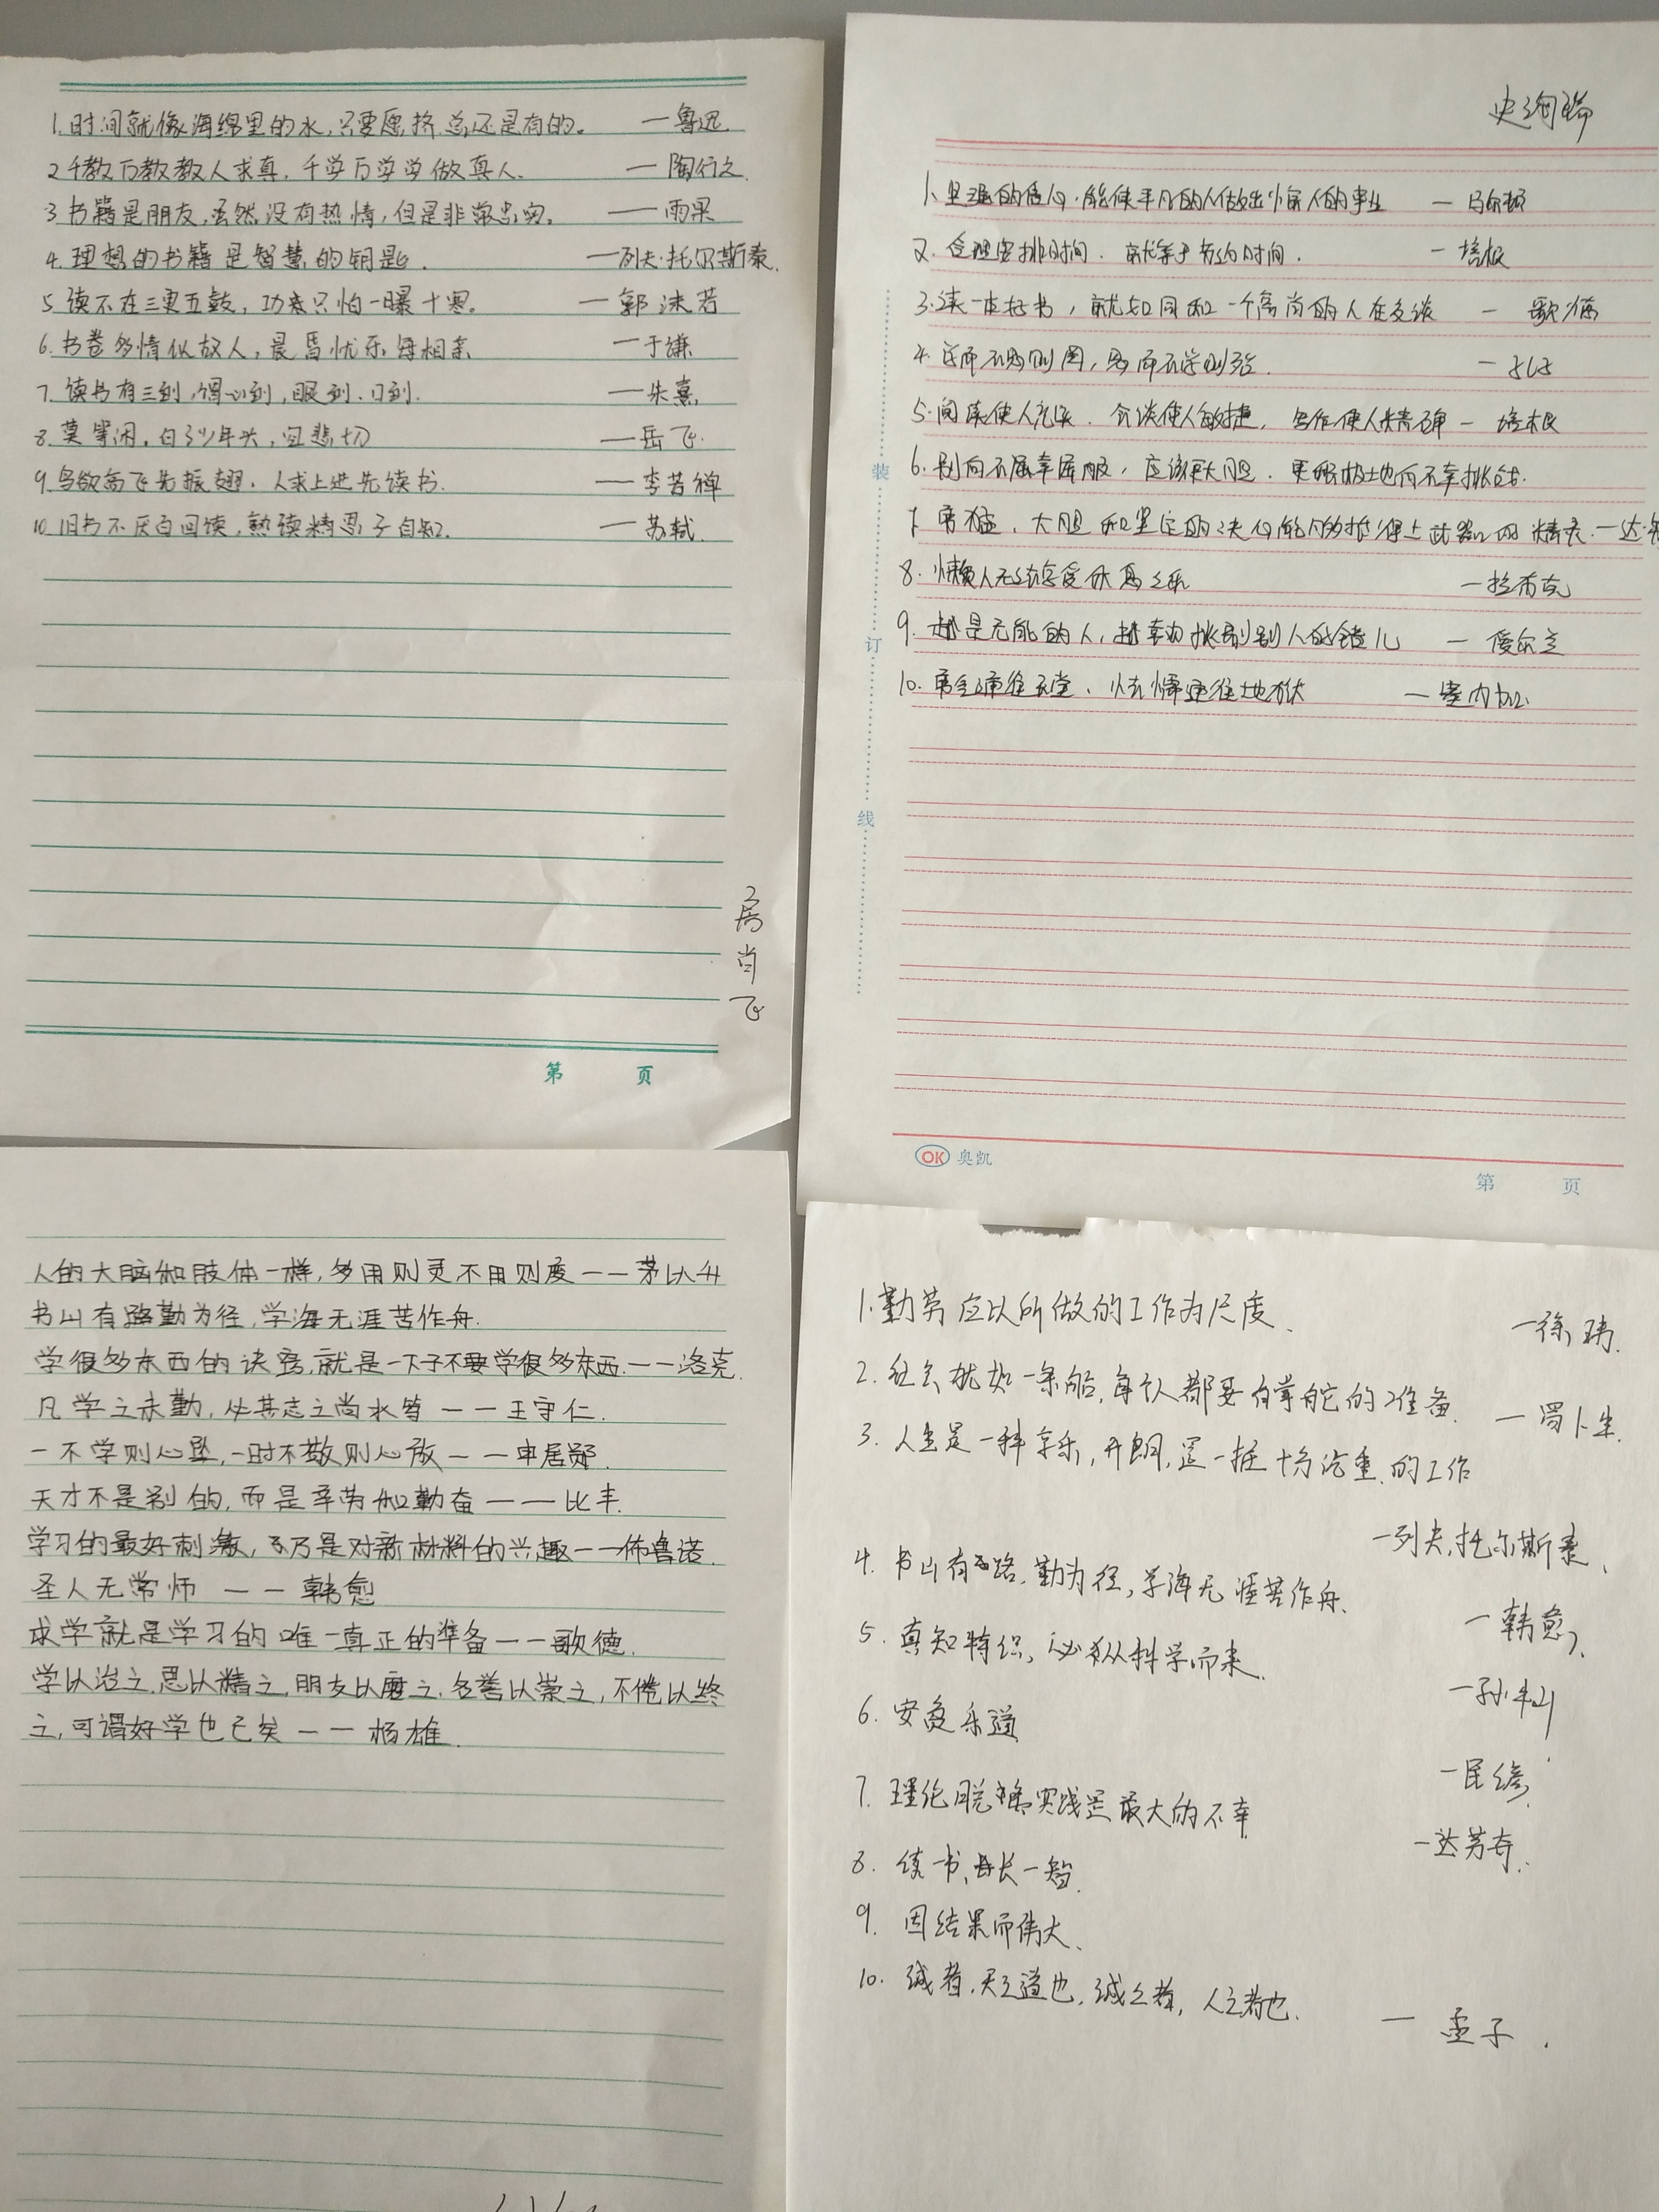 1.时间就像海绵里的水,只要愿挤,总还是有的。 —鲁迅.
2千教万教教人求真,千学万学学做真人. —陶行之.
3书籍是朋友,虽然没有热情,但是非常忠实。 —雨果
4.理想的书籍是智慧的钥匙. —列夫·托尔斯泰.
5.读不在三更五鼓,功夫只怕一曝十寒。 —郭沫若
6.书卷多情似故人,晨昏忧乐每相亲 —于谦
7.读书有三到,谓心到,眼到.口到. —朱熹,
8.莫等闲,白了少年头,空悲切 —岳飞.
9.鸟欲高飞先振翅,人求上进先读书. —李苦禅
10.旧书不厌百回读,熟读精思子自知. —苏轼.
房肖飞
第 页
史 瑞
1、坚强的信心.能使平凡的人做出惊人的事业 —马尔顿
2.合理安排时间.就等于节约时间. —培根
3.读一本好书,就如同和一个高尚的人在交谈 — 歌德
4.学而不思则罔,思而不学则殆. —孔子
5.阅读使人充实.会谈使人敏捷,写作使人精确 — 培根
6.别向不屈幸屈服,应该更大胆.更积极地向不幸挑战.
7 勇猛、大胆和坚定的决心能够抵得上武器的精良.—达·
8.懒人无法享受休息之乐 —拉布克
9.越是无能的人,越喜欢挑剔别人的错儿 — 爱尔兰
10.勇气通往天堂、怯懦通往地狱 —塞内加.
装
订
线
OK 奥凯
第 页
人的大脑和肢体一样,多用则灵不用则废——茅以升
书山有路勤为径,学海无涯苦作舟.
学很多东西的诀窍,就是一下子不要学很多东西.——洛克.
凡学之未勤,必其志之尚未笃——王守仁.
一不学则心坠,一时不敬则心放——申居郧.
天才不是别的,而是辛劳和勤奋——比丰.
学习的最好刺激,乃是对新材料的兴趣——佈鲁诺.
圣人无常师——韩愈
求学就是学习的唯一真正的准备——歌德.
学以治之.思以精之,朋友以磨之,名誉以崇之,不倦以终
之,可谓好学也已矣——杨雄.
1.勤劳应以所做的工作为尺度. —徐玮.
2.社会犹如一条船,每个人都要有掌舵的准备.
—易卜生.
3.人生是一种享乐,开朗,是一桩十分沉重.的工作
—列夫.托尔斯泰.
4.书山有路.勤为径,学海无涯苦作舟.
—韩愈
5.真知特识,必须从科学而来.
—孙中山
6.安贫乐道
—民谚.
7.理伦脱离实践是最大的不幸
—达芬奇.
8.读书,每长一智.
9.因结果而伟大.
10.诚者.天之道也,诚之者,人之者也.
— 孟子.